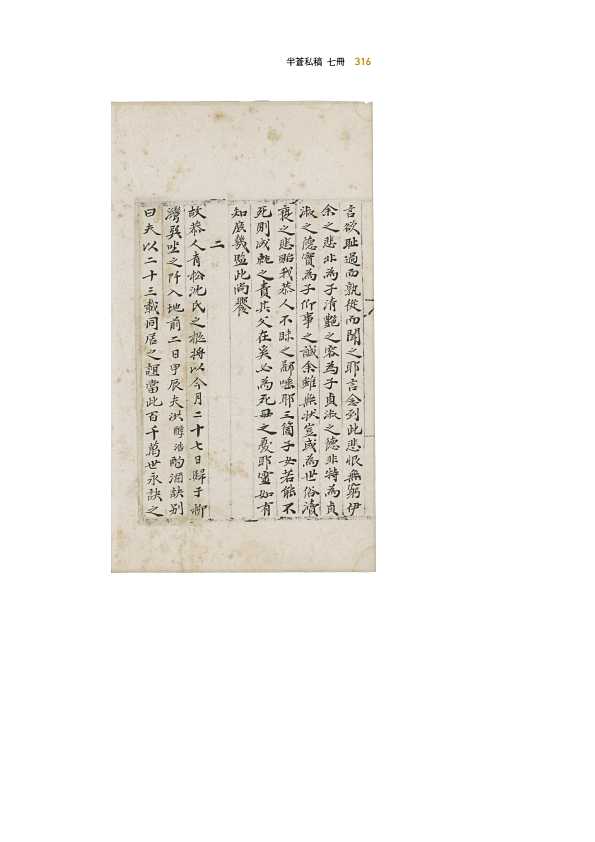 半蒼私稿 七冊 316
言欲耻過而孰從而聞之耶言念到此悲恨無窮伊
余之悲非為子清艶之容為子貞淑之德非特為貞
淑之德實為子仰事之誠余雖無狀豈或為世俗瀆
喪之悲貽我恭人不昧之鄙嗤耶三箇子女若能不
死則成軝之責其父在奚必為死母之憂耶靈如有
知庶幾監此尚饗
二
故恭人青松沈氏之柩將以今月二十七日歸于柳
灣巽坐之阡入地前二日甲辰夫洪醇浩酌酒訣別
曰夫以二十三載同居之誼當此百千萬世永訣之